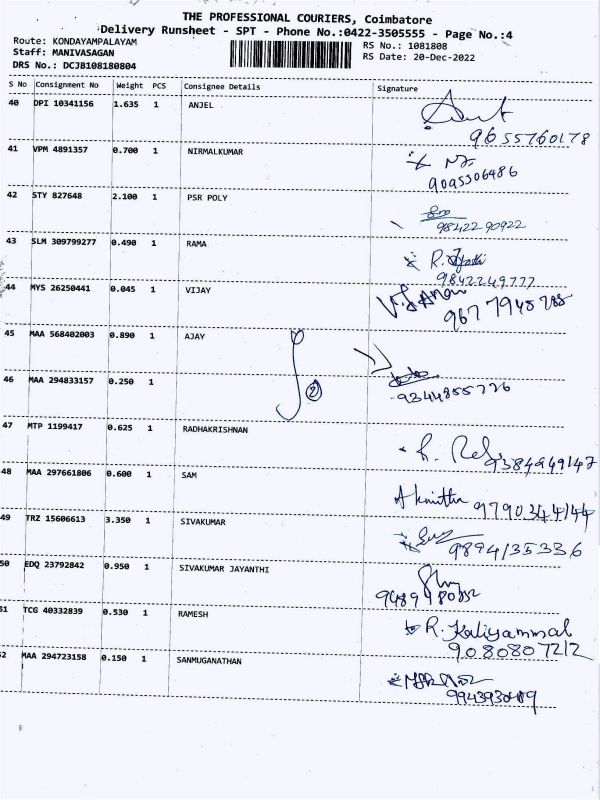 THE PROFESSIONAL COURIERS, Coimbatore
Delivery Runsheet - SPT - Phone No.:0422-3505555 - Page No.:4
Route: KONDAYAMPALAYAM
Staff: MANIVASAGAN
DRS No.: DCJB108180804
RS No.: 1081808
RS Date: 20-Dec-2022
S No Consignment No Weight PCS Consignee Details Signature
40 DPI 10341156 1.635 1 ANJEL
9655760178
41 VPM 4891357 0.700 1 NIRMALKUMAR
9095506486
42 STY 827648 2.100 1 PSR POLY
98422 90922
43 SLM 309799277 0.490 1 RAMA R. Jothi
9842249777
44 MYS 26250441 0.045 1 VIJAY
45 MAA 568402003 0.890 1 AJAY
46 MAA 294833157 0.250 1 2
9344855776
47 MTP 1199417 0.625 1 RADHAKRISHNAN
9384949147
48 MAA 297661806 0.600 1 SAM
9790344144
49 TRZ 15606613 3.350 1 SIVAKUMAR
9894135336
50 EDQ 23792842 0.950 1 SIVAKUMAR JAYANTHI
51 TCG 40332839 0.530 1 RAMESH R. Kaliyammal
9080807212
52 MAA 294723158 0.150 1 SANMUGANATHAN